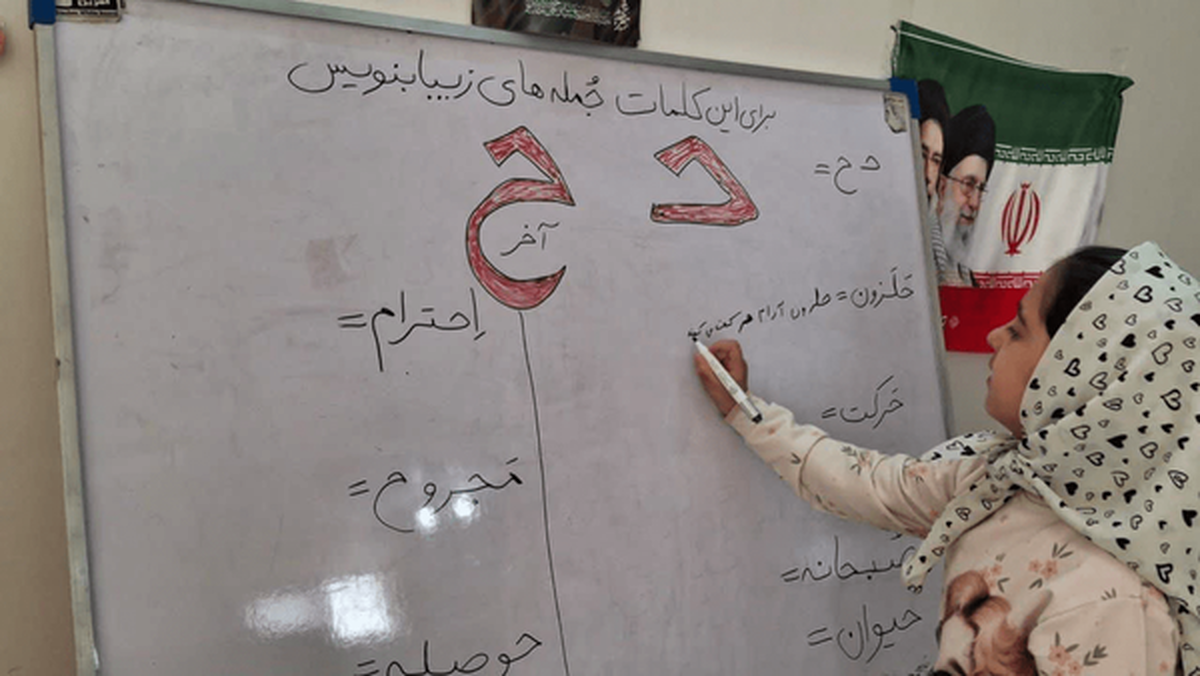 برای این کلمات جُمله های زیبا بنویس
حـ ح =
حـ ح
آخر
حَلَزون = حلزون آرام حرکت می کند
اِحترام =
حَرکت =
مَجروح =
صُبحانه =
حیوان =
حوصله =